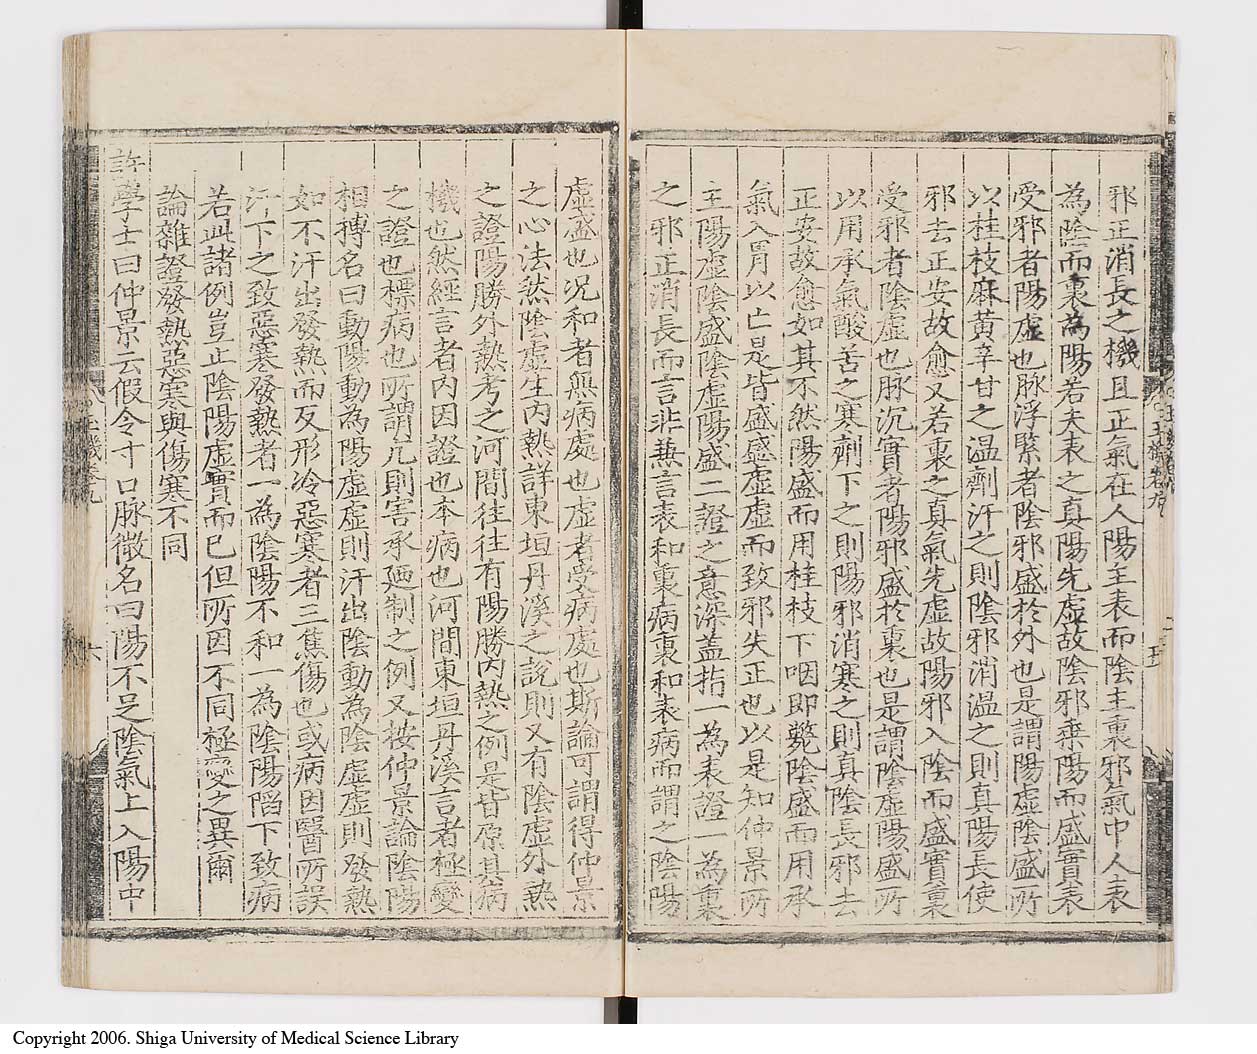 邪正消長之機且正氣在人陽主表而陰主裏邪氣中人表
為陰而裏為陽若夫表之真陽先虛故陰邪乘陽而盛實表
受邪者陽虛也脉浮緊者陰邪盛於外也是謂陽虛陰盛所
以桂枝麻黃辛甘之温劑汗之則陰邪消温之則真陽長使
邪去正安故愈又若裏之真氣先虛故陽邪入陰而盛實裏
受邪者陰虛也脉沉實者陽邪盛於裏也是謂陰虛陽盛所
以用承氣酸苦之寒劑下之則陽邪消寒之則真陰長邪去
正安故愈如其不然陽盛而用桂枝下咽即斃陰盛而用承
氣入胃以亡是皆盛盛虛虛而致邪失正也以是知仲景所
主陽虛陰盛陰虛陽盛二證之意深蓋指一為表證一為裏
之邪正消長而言非無言表和裏病裏和表病而謂之陰陽
虛盛也况和者無病處也虛者受病處也斯論可謂得仲景
之心法然陰虛生内熱詳東垣丹溪之說則又有陰虛外熱
之證陽勝外熱考之河間往往有陽勝内熱之例是皆原其病
機也然經言者内因證也本病也河間東垣丹溪言者極變
之證也標病也所謂亢則害承廼制之例又桉仲景論陰陽
相摶名曰動陽動為陽虛虛則汗出陰動為陰虛虛則發熱
如不汗出發熱而反形冷惡寒者三焦傷也或病因醫所誤
汗下之致惡寒發熱者一為陰陽不和一為陰陽陷下致病
若此諸例豈止陰陽虛實而已但所因不同極變之異爾
論雜證發熱惡寒與傷寒不同
許學士曰仲景云假令寸口脉微名曰陽不足陰氣上入陽中
六
Copyright 2006. Shiga University of Medical Science Library